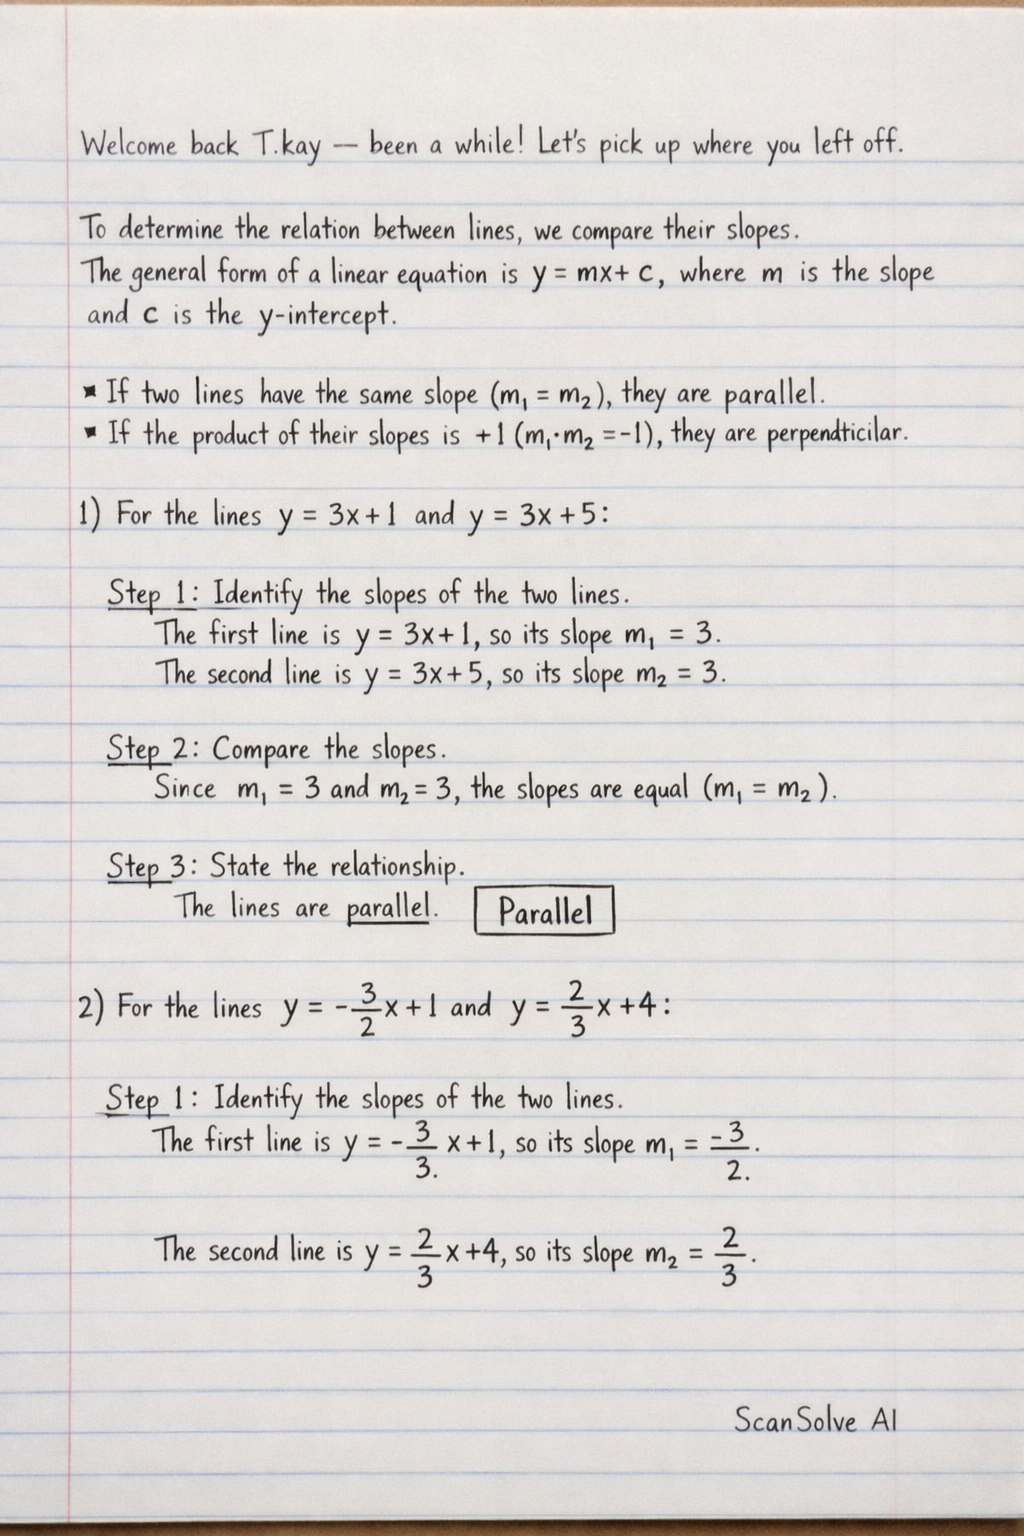 Welcome back T.kay — been a while! Let's pick up where you left off.
To determine the relation between lines, we compare their slopes.
The general form of a linear equation is y = mx + c, where m is the slope
and c is the y-intercept.
▪ If two lines have the same slope (m₁ = m₂), they are parallel.
▪ If the product of their slopes is +1 (m₁·m₂ = -1), they are perpendticilar.
1) For the lines y = 3x + 1 and y = 3x + 5:
Step 1: Identify the slopes of the two lines.
The first line is y = 3x + 1, so its slope m₁ = 3.
The second line is y = 3x + 5, so its slope m₂ = 3.
Step 2: Compare the slopes.
Since m₁ = 3 and m₂ = 3, the slopes are equal (m₁ = m₂).
Step 3: State the relationship.
The lines are parallel. Parallel
2) For the lines y = -3/2 x + 1 and y = 2/3 x + 4:
Step 1: Identify the slopes of the two lines.
The first line is y = -3/3. x + 1, so its slope m₁ = -3/2. .
The second line is y = 2/3 x + 4, so its slope m₂ = 2/3.
ScanSolve AI